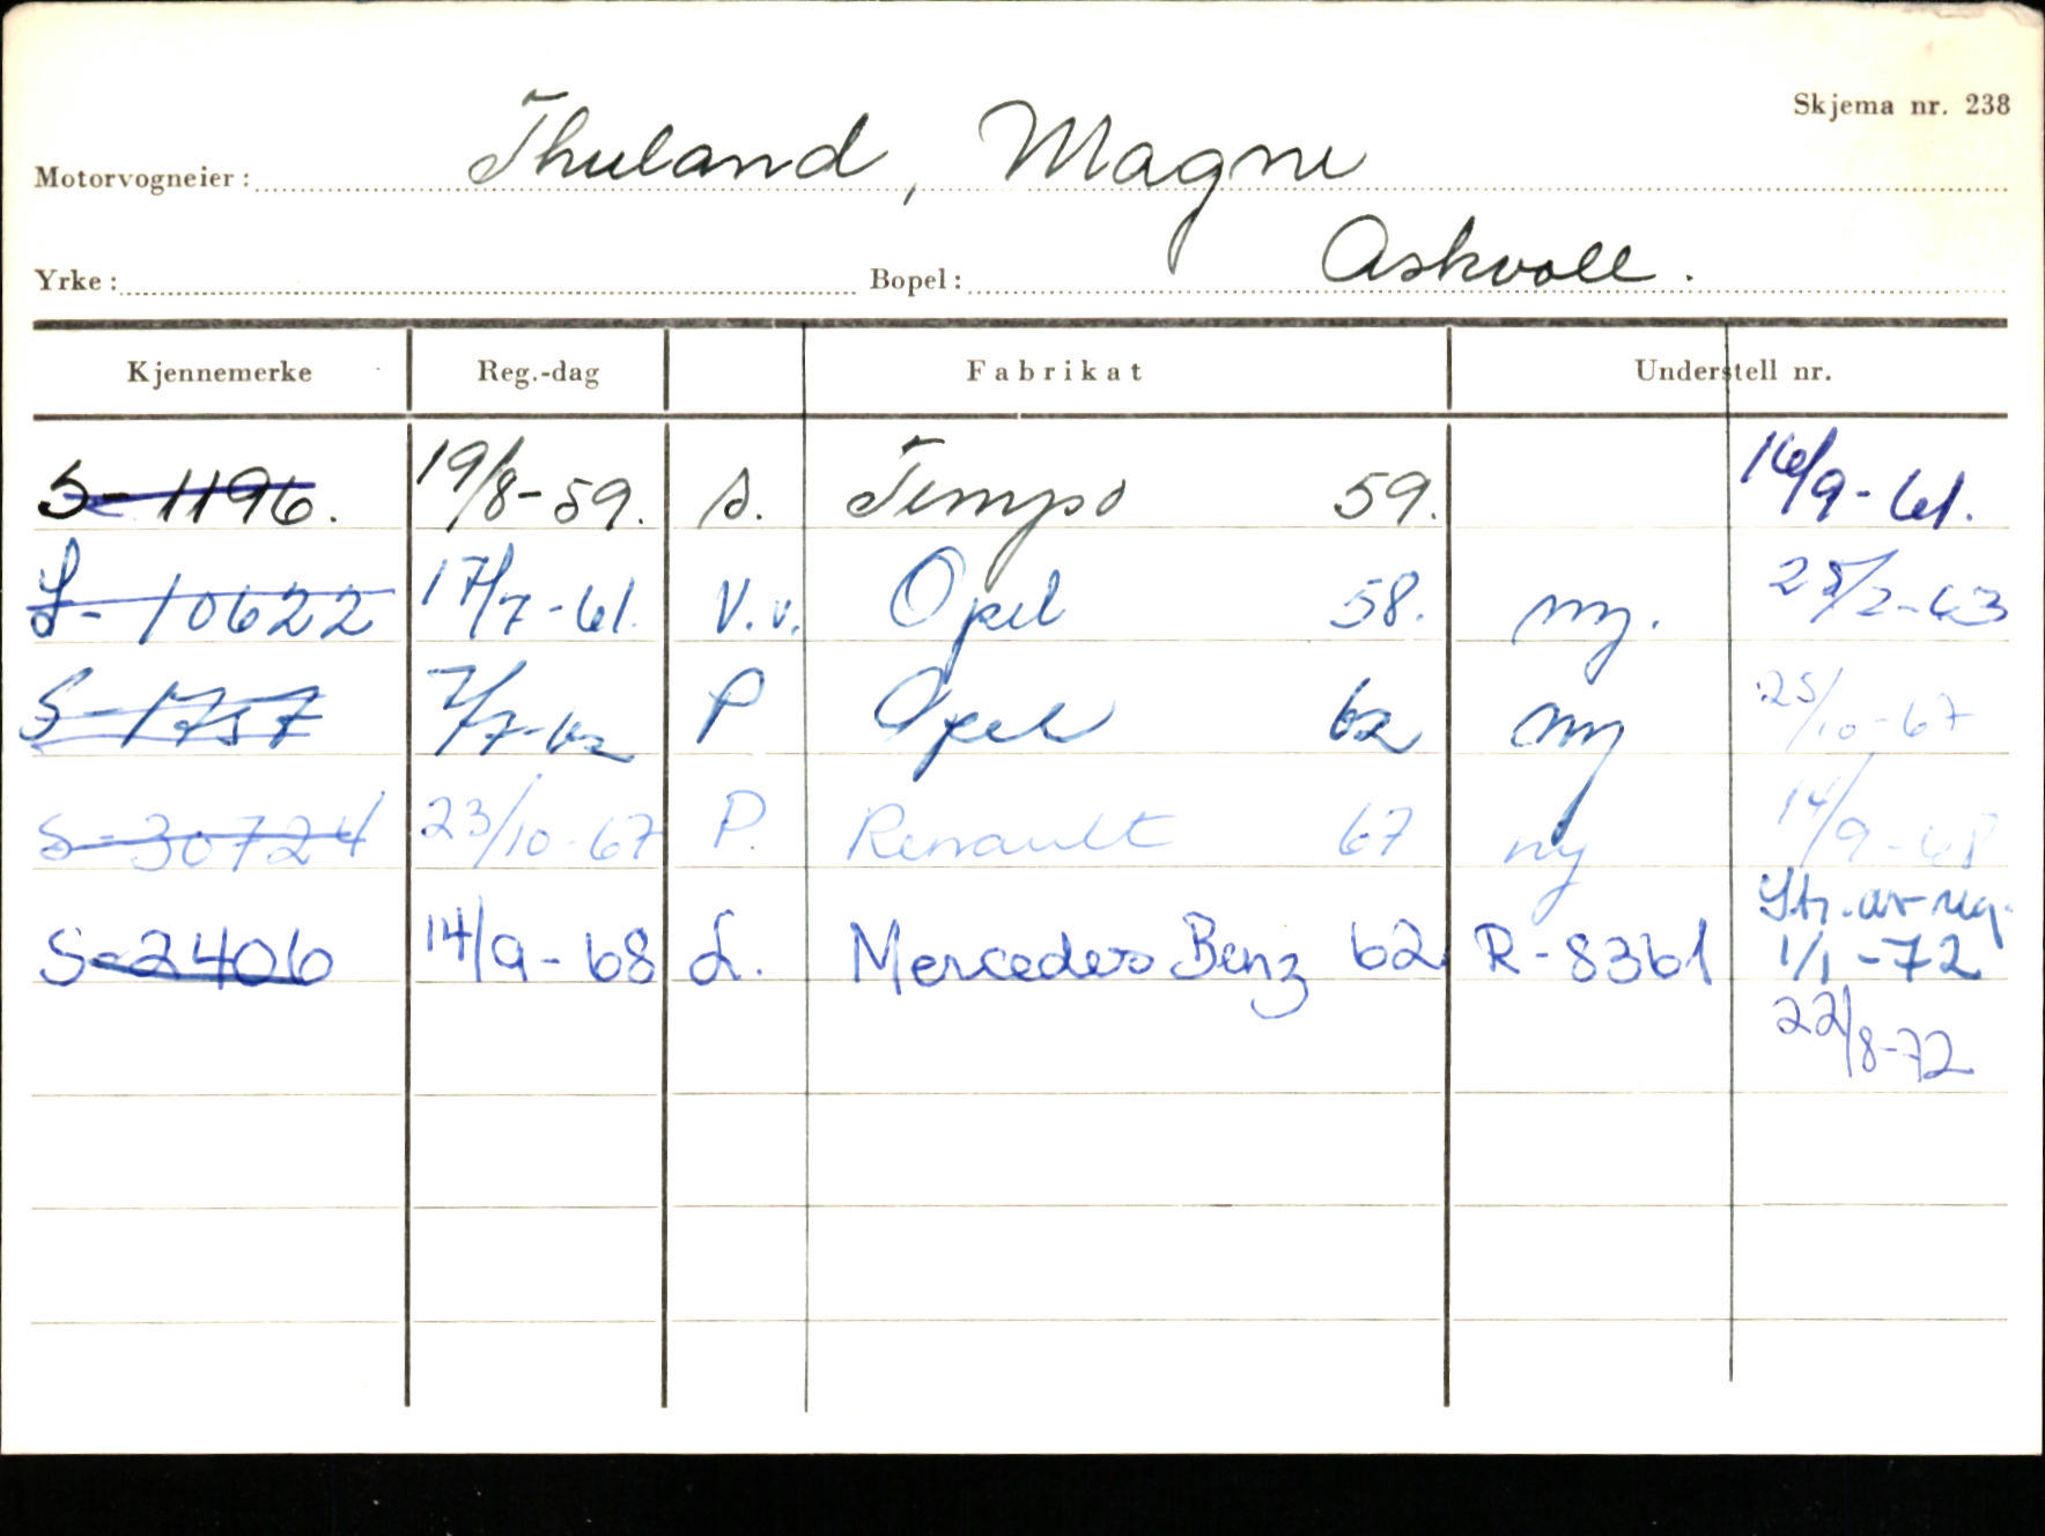 Skjema nr. 238
Motorvogneier: Thuland, Magne
Yrke: Bopel: Askvoll.
Kjennemerke Reg.-dag Fabrikat Understell nr.
S-1196. 19/8-59. s. Tempo 59. 16/9-61.
S-10622 17/7-61. V.v. Opel 58. ny. 25/2-63
S-1757 7/7-62 P Opel 62 ny 25/10-67
S-30724 23/10-67 P. Renault 67 ny 14/9-68
Str. av reg.
S-2406 14/9-68 L. Mercedes Benz 62 R-8361 1/1-72
22/8-72